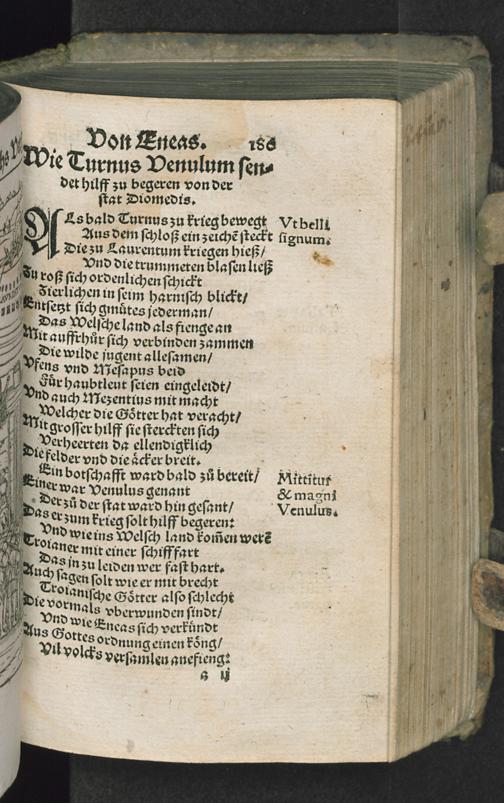 Von Eneas. 186
Wie Turnus Venulum sen-
det hilff zu begeren von der
stat Diomedis.
ALs bald Turnus zu krieg bewegt
Aus dem schloß ein zeichē steckt
Die zu Laurentum kriegen hieß/
Vnd die trummeten blasen ließ
Zu roß sich ordenlichen schickt
Zierlichen in seim harnisch blickt/
Entsetzt sich gmütes jederman/
Das Welsche land als fienge an
Mit auffrhůr sich verbinden zammen
Die wilde jugent allesamen/
Vfens vnd Mesapus beid
Für haubtleut seien eingeleidt/
Vnd auch Mezentius mit macht
Welcher die Götter hat veracht/
Mit grosser hilff sie sterckten sich
Verheerten da ellendigklich
Die felder vnd die äcker breit.
Ein botschafft ward bald zů bereit/
Einer war Venulus genant
Der zů der stat ward hin gesant/
Das er zum krieg solt hilff begeren:
Vnd wie ins Welsch land kom̄en werē
Troianer mit einer schifffart
Das in zu leiden wer fast hart.
Auch sagen solt wie er mit brecht
Troianische Götter also schlecht
Die vormals vberwunden sindt/
Vnd wie Eneas sich verkündt
Aus Gottes ordnung einen köng/
Vil volcks versamlen anefieng:
a ij
Vt belli
signum.
Mittitur
& magni
Venulus.